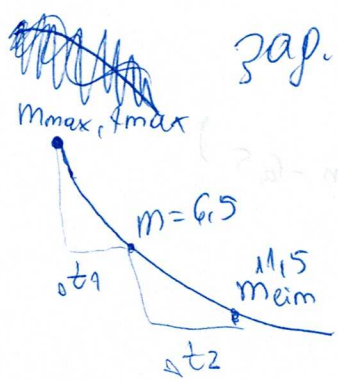 зар.
mmax, tmax
m=6,5
11,5
mlim
Δt1
Δt2